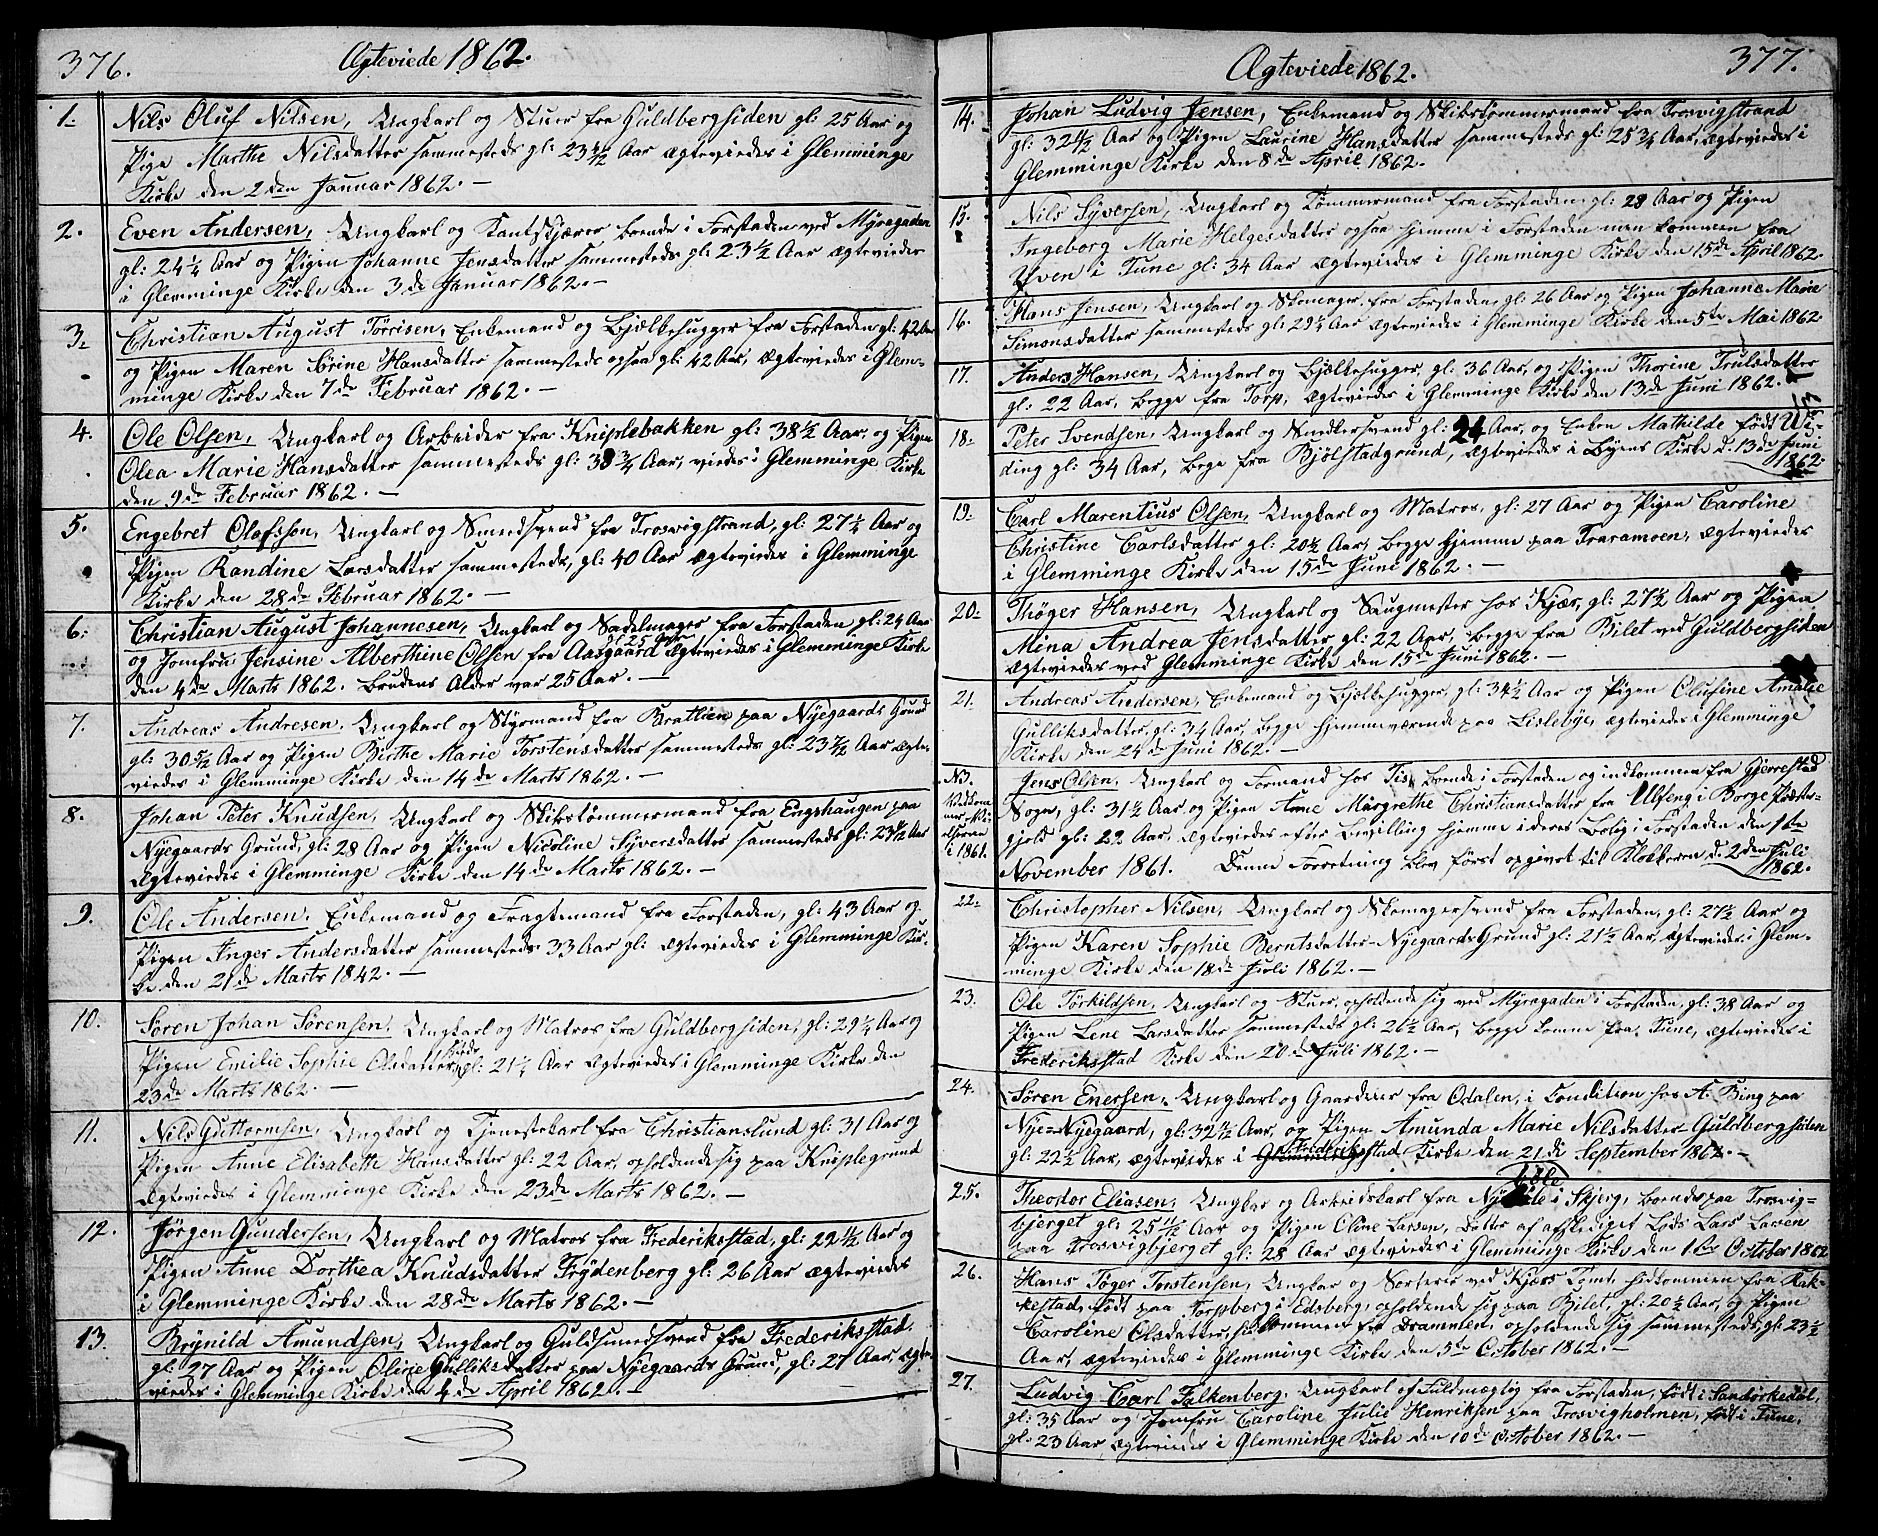 376.
Ægteviede 1862.
1. Nils Oluf Nilsen, Ungkarl og Stuer fra Guldbergsiden gl: 25 Aar og
Pige Marthe Nilsdatter sammesteds gl: 23 Aar Ægteviedes i Glemminge
Kirke den 2den Januar 1862. —
2. Even Andersen, Ungkarl og Kantskjærer, boende i Forstaden ved Myregaden
gl: 24 1/4 Aar og Pigen Johanne Jensdatter sammesteds gl: 23 1/2 Aar Ægteviedes
i Glemminge Kirke den 3de Januar 1862. —
3. Christian August Törrisen, Enkemand og Bjælkehugger fra Forstaden gl: 42 Aar
og Pigen Maren Sörine Hansdatter sammesteds ogsaa gl: 42 Aar, Ægteviedes i Glem-
minge Kirke den 7de Februar 1862. —
4. Ole Olsen, Ungkarl og Arbeider fra Kniplebakken gl: 38 1/2 Aar, og Pigen
Olea Marie Hansdatter sammesteds gl: 3/4 Aar, viedes i Glemminge Kirke
den 9de Februar 1862. —
5. Engebret Olafssön, Ungkarl og Smedsvend fra Trosvigstrand, gl: 27 1/4 Aar og
Pigen Randine Larsdatter sammesteds, gl: 40 Aar Ægteviedes i Glemminge
Kirke den 28de Februar 1862. —
6: Christian August Johannesen, Ungkarl og Sadelmager fra Forstaden gl: 24 Aar
og Jomfru Jensine Alberthine Olsen fra Aasgaard gl 25 Aar Ægteviedes i Glemminge Kirke
den 4de Marts 1862. Brudens Alder var 25 Aar. —
7. Andreas Andresen, Ungkarl og Styrmand, fra Bratlien paa Nyegaards Grund
gl: 30 Aar og Pigen Birthe Marie Torstensdatter sammesteds gl: 23 Aar Ægte-
viedes i Glemminge Kirke den 14de Marts 1862. —
8. Johan Peter Knudsen, Ungkarl og Skibstømmermand fra Engshaugen paa
Nyegaards Grund, gl: 28 Aar og Pigen Nicoline Syversdatter sammesteds gl: 23 Aar
Ægteviedes i Glemminge Kirke den 14de Marts 1862. —
9. Ole Andersen. Enkemand og Fragtemand fra Forstaden, gl: 43 Aar og
Pigen Inger Andersdatter sammesteds 33 Aar gl: Ægteviedes i Glemminge Kir-
ke den 21de Marts 1842. —
10. Sören Johan Sörensen, Ungkarl og Matros fra Guldbergsiden, gl: 29 1/4 Aar og
Pigen Emilie Sophie Olsdatter gl: 21 1/4 Aar Ægteviedes i Glemminge Kirke den
23de Marts 1862. —
11. Nils Guttormsen, Ungkarl og Tjenestekarl fra Christianslund gl: 31 Aar og
Pigen Anne Elisabette Hansdatter gl: 22 Aar, opholdende sig paa Kniplegrund
Ægteviedes i Glemminge Kirke den 23de Marts 1862. —
12. Jörgen Gundersen, Ungkarl og Matros fra Frederiksstad, gl: 22 Aar og
Pigen Anne Dorthea Knudsdatter Frydenberg gl: 26 Aar Ægteviedes
i Glemminge Kirke den 28de Marts 1862. —
13. Brynild Amundsen, Ungkarl og Guldsmedsvend fra Frederiksstad.
gl: 27 Aar og Pigen Oline Gulliksdatter paa Nyegaards Grund, gl: 27 Aar, Ægte-
viedes i Glemminge Kirke den 4de April 1862. —
Ægteviede 1862.
377.
14. Johan Ludvig Jensen, Enkemand og Skibstømmermand fra Trosvigstrand
gl: 32 Aar og Pigen Laurine Hansdatter sammesteds gl: 25 3/4 Aar, Ægteviedes i
Glemminge Kirke den 8de April 1862. —
15. Nils Syversen, Ungkarl og Tømmermand fra Forstaden, gl: 28 Aar og Pigen
Ingeborg Marie Helgesdatter ogsaa hjemme i Forstaden men kommen fra
Yven i Tune gl: 34 Aar Ægteviedes i Glemminge Kirke den 15de April 1862.
16. Hans Jensen, Ungkarl og Skomager, fra Forstaden, gl: 26 Aar og Pigen Johanne Marie
Simonsdatter sammesteds gl: 29 1/4 Aar Ægteviedes i Glemminge Kirke den 5te Mai 1862.
17. Anders Hansen, Ungkarl og Bjælkehugger, gl: 36 Aar, og Pigen Thorine Trulsdatter
gl: 22 Aar, begge fra Torp, Ægteviedes i Glemminge Kirke den 13de Juni 1862.
18. Peter Svendsen, Ungkarl og Snedkersvend gl: 24 Aar, og Enken Mathilde født Wi-
ding gl: 34 Aar, begge fra Bjölstadgrund, Ægteviedes i Byens Kirke d. 13de Juni
1862.
19. Carl Marentius Olsen, Ungkarl og Matros, gl: 27 Aar og Pigen Caroline
Christine Carlsdatter gl: 20 1/2 Aar, begge hjemme paa Traramoen, Ægteviedes
i Glemminge Kirke den 15de Juni 1862. —
20. Thöger Hansen, Ungkarl og Saugmester hos Kjær, gl: 27 1/2 Aar og Pigen
Mina Andrea Jensdatter gl: 22 Aar, begge fra Bilet ved Guldbergsiden
Ægteviedes ved Glemminge Kirke den 15de Juni 1862. —
21. Andreas Andersen, Enkemand og Bjælkehugger, gl: 34 1/2 Aar og Pigen Olufine Amalie
Gulliksdatter, gl: 34 Aar, begge hjemmeværende paa Lislebye, Ægteviedes i Glemminge
Kirke den 24de Juni 1862. —
N3.
i 1861. Jens Olsen, Ungkarl og Formand hos Tis, boende i Forstaden og indkommen fra Gjerrestad
Sogn, gl: 31 1/2 Aar og Pigen Anne Margrethe Christiansdatter fra Ulfeng i Borge Præste-
gjeld gl: 22 Aar, Ægteviedes efter Bevilling hjemme i deres Bolig i Forstaden den 1ste
November 1861. Denne Forretning blev først opgivet til Klokkeren d. 2den Juli
1862.
22. Christopher Nilsen, Ungkarl og Skomagersvend fra Forstaden, gl: 27 1/2 Aar og
Pigen Karen Sophie Berntsdatter Nyegaards Grund gl: 21 1/2 Aar, Ægteviedes i Glem-
minge Kirke den 18de Juli 1862. —
23. Ole Törkildsen, Ungkarl og Stuer, opholdende sig ved Myregaden i Forstaden, gl: 38 Aar og
Pigen Lene Larsdatter sammesteds gl: 26 1/2 Aar, begge komne fra Tune, Ægteviedes i
Frederiksstad Kirke den 20de Juli 1862. —
24. Sören Enersen, Ungkarl og Gaardener fra Odalen, i Condition hos A. Bing paa
Nye-Nyegaard, gl: 32 Aar, og Pigen Amunda Marie Nilsdatter Guldbergsiden
gl: 22 1/2 Aar, Ægteviedes i Fredriksstad Kirke den 21de September 1862. —
25. Theodor Eliasen, Ungkar og Arbeidskarl fra Ny böle i Skjerg, boende paa Trosvig-
bjerget gl: 25 11/12 Aar og Pigen Oline Larsen, Datter af afskediget Lods Lars Larsen
paa Trosvigbjerget gl: 28 Aar Ægteviedes i Glemminge Kirke den 1ste October 1862
26. Hans Töger Torstensen, Ungkar og Sorterer ved Kjærs Tømt, hidkommen fra Rak-
kestad, født paa Torpberg i Edsberg, opholdende sig paa Bilet, gl: 20 1/2 Aar, og Pigen
Caroline Olsdatter, hidkommen fra Drammen, opholdende sig sammesteds, gl: 23 1/2
Aar, Ægteviedes i Glemminge Kirke den 5te October 1862. —
27. Ludvig Carl Falkenberg, Ungkarl og Fuldmægtig fra Forstaden, født i Sandörkedal,
gl: 35 Aar og Jomfru Caroline Julie Henriksen paa Trosvigholmen, født i Tune,
gl: 23 Aar, Ægteviedes i Glemminge Kirke den 10de October 1862. —